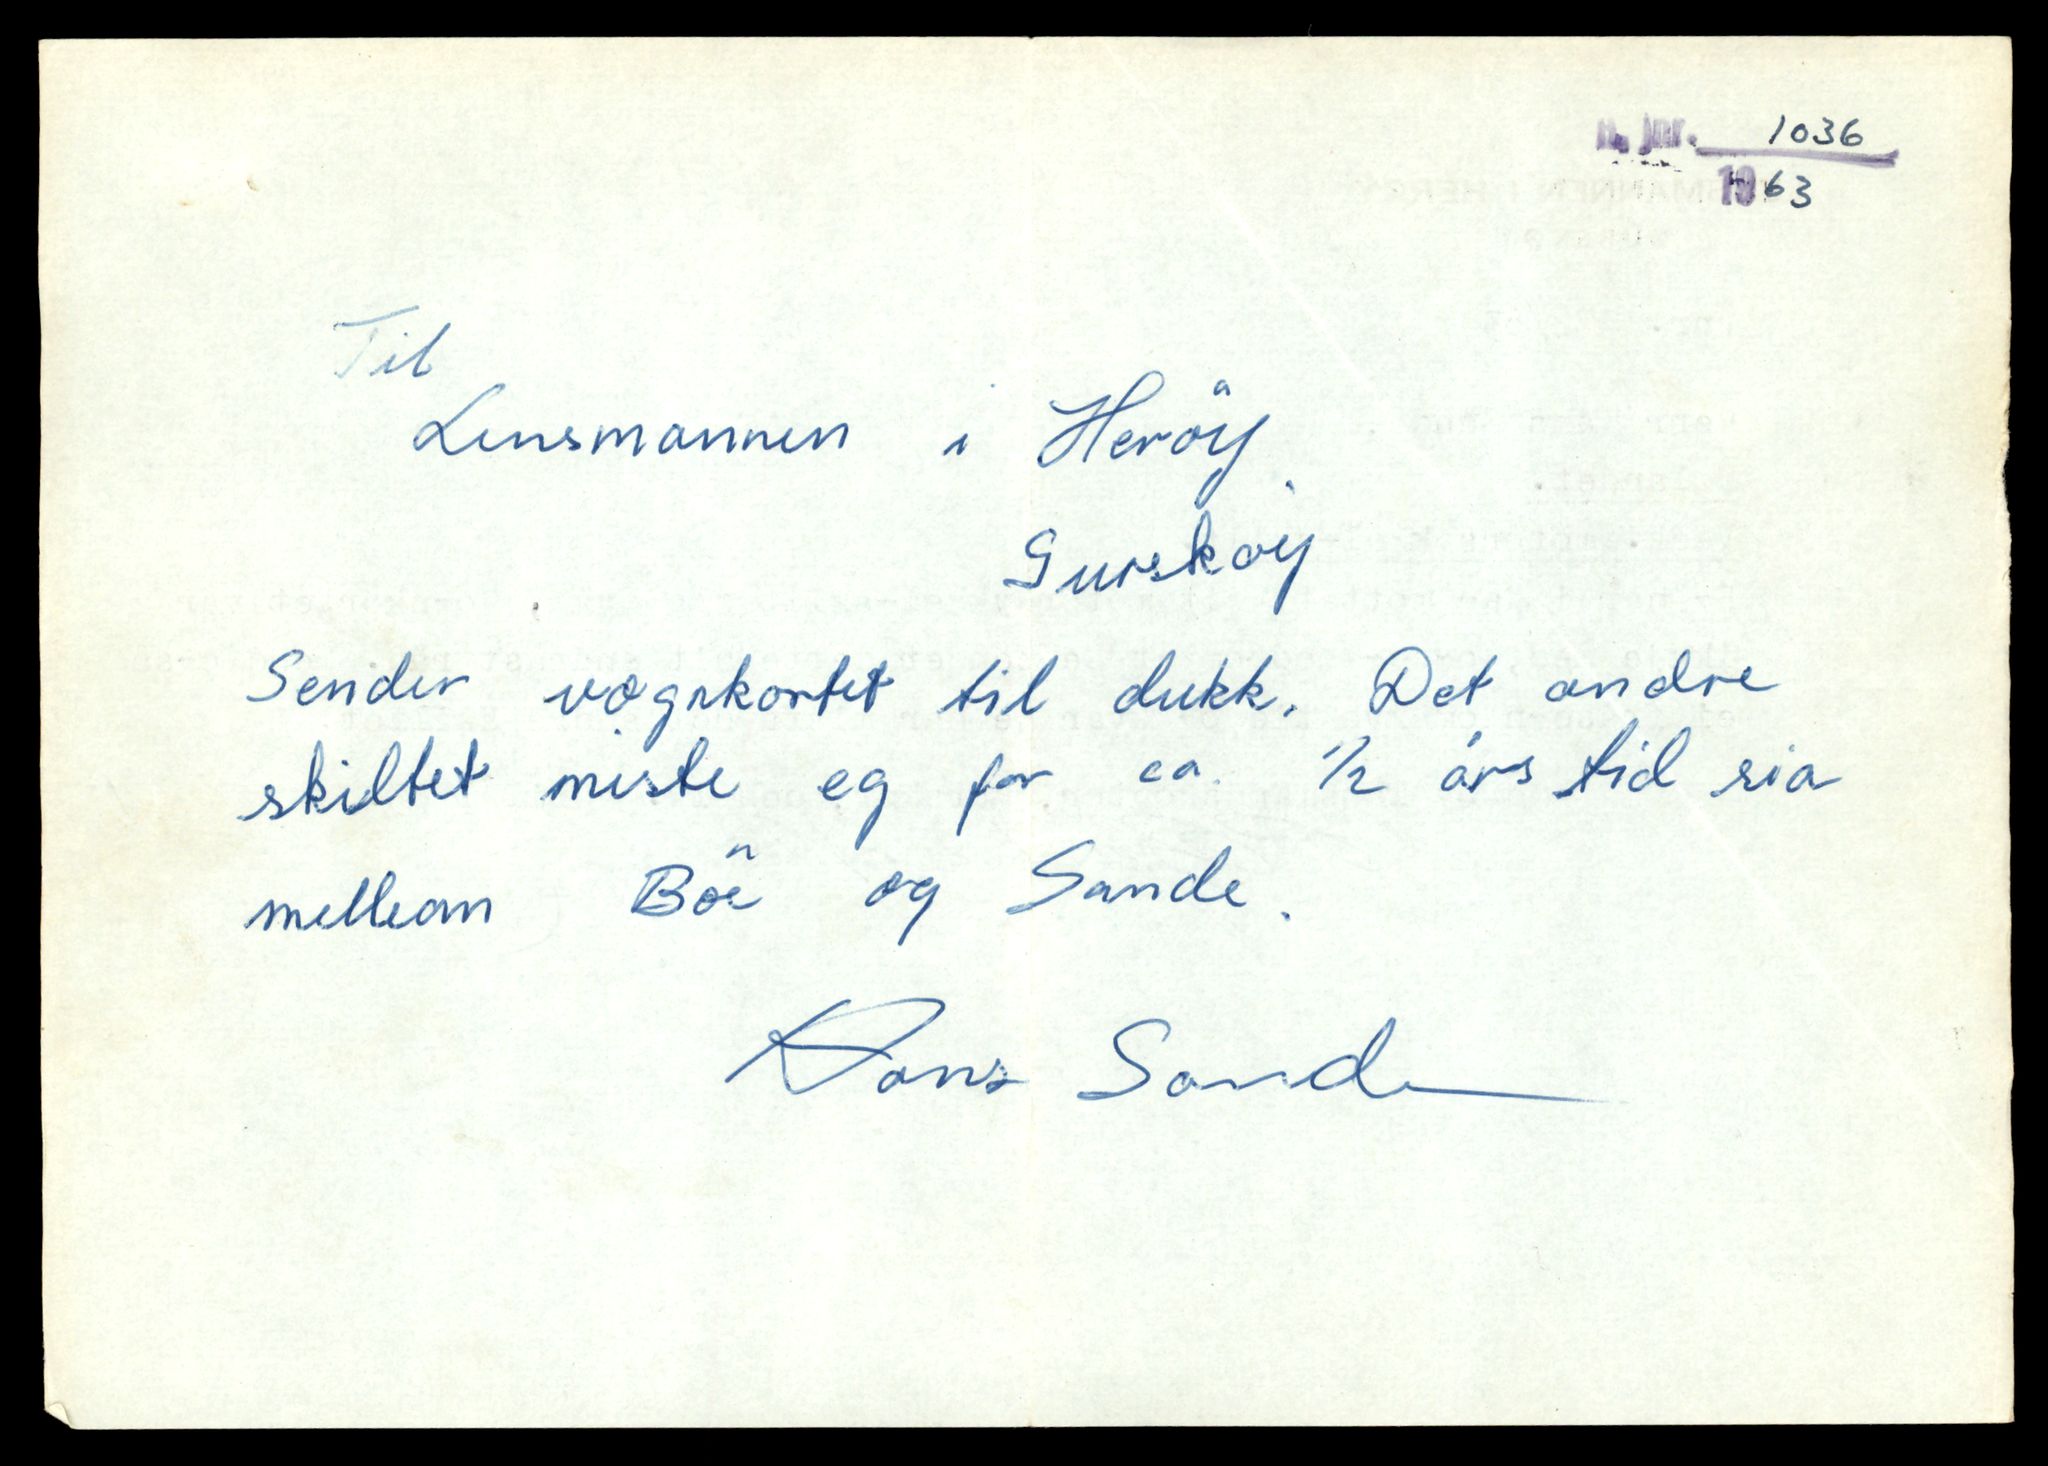 n. jnr. 1036
1963
Til
Lensmannen i Heröy
Gurskøy
Sender vognkortet til dukk. Det andre
skiltet miste eg for ca. 1/2 års tid sia
mellom Böe og Sande.
Hans Sande